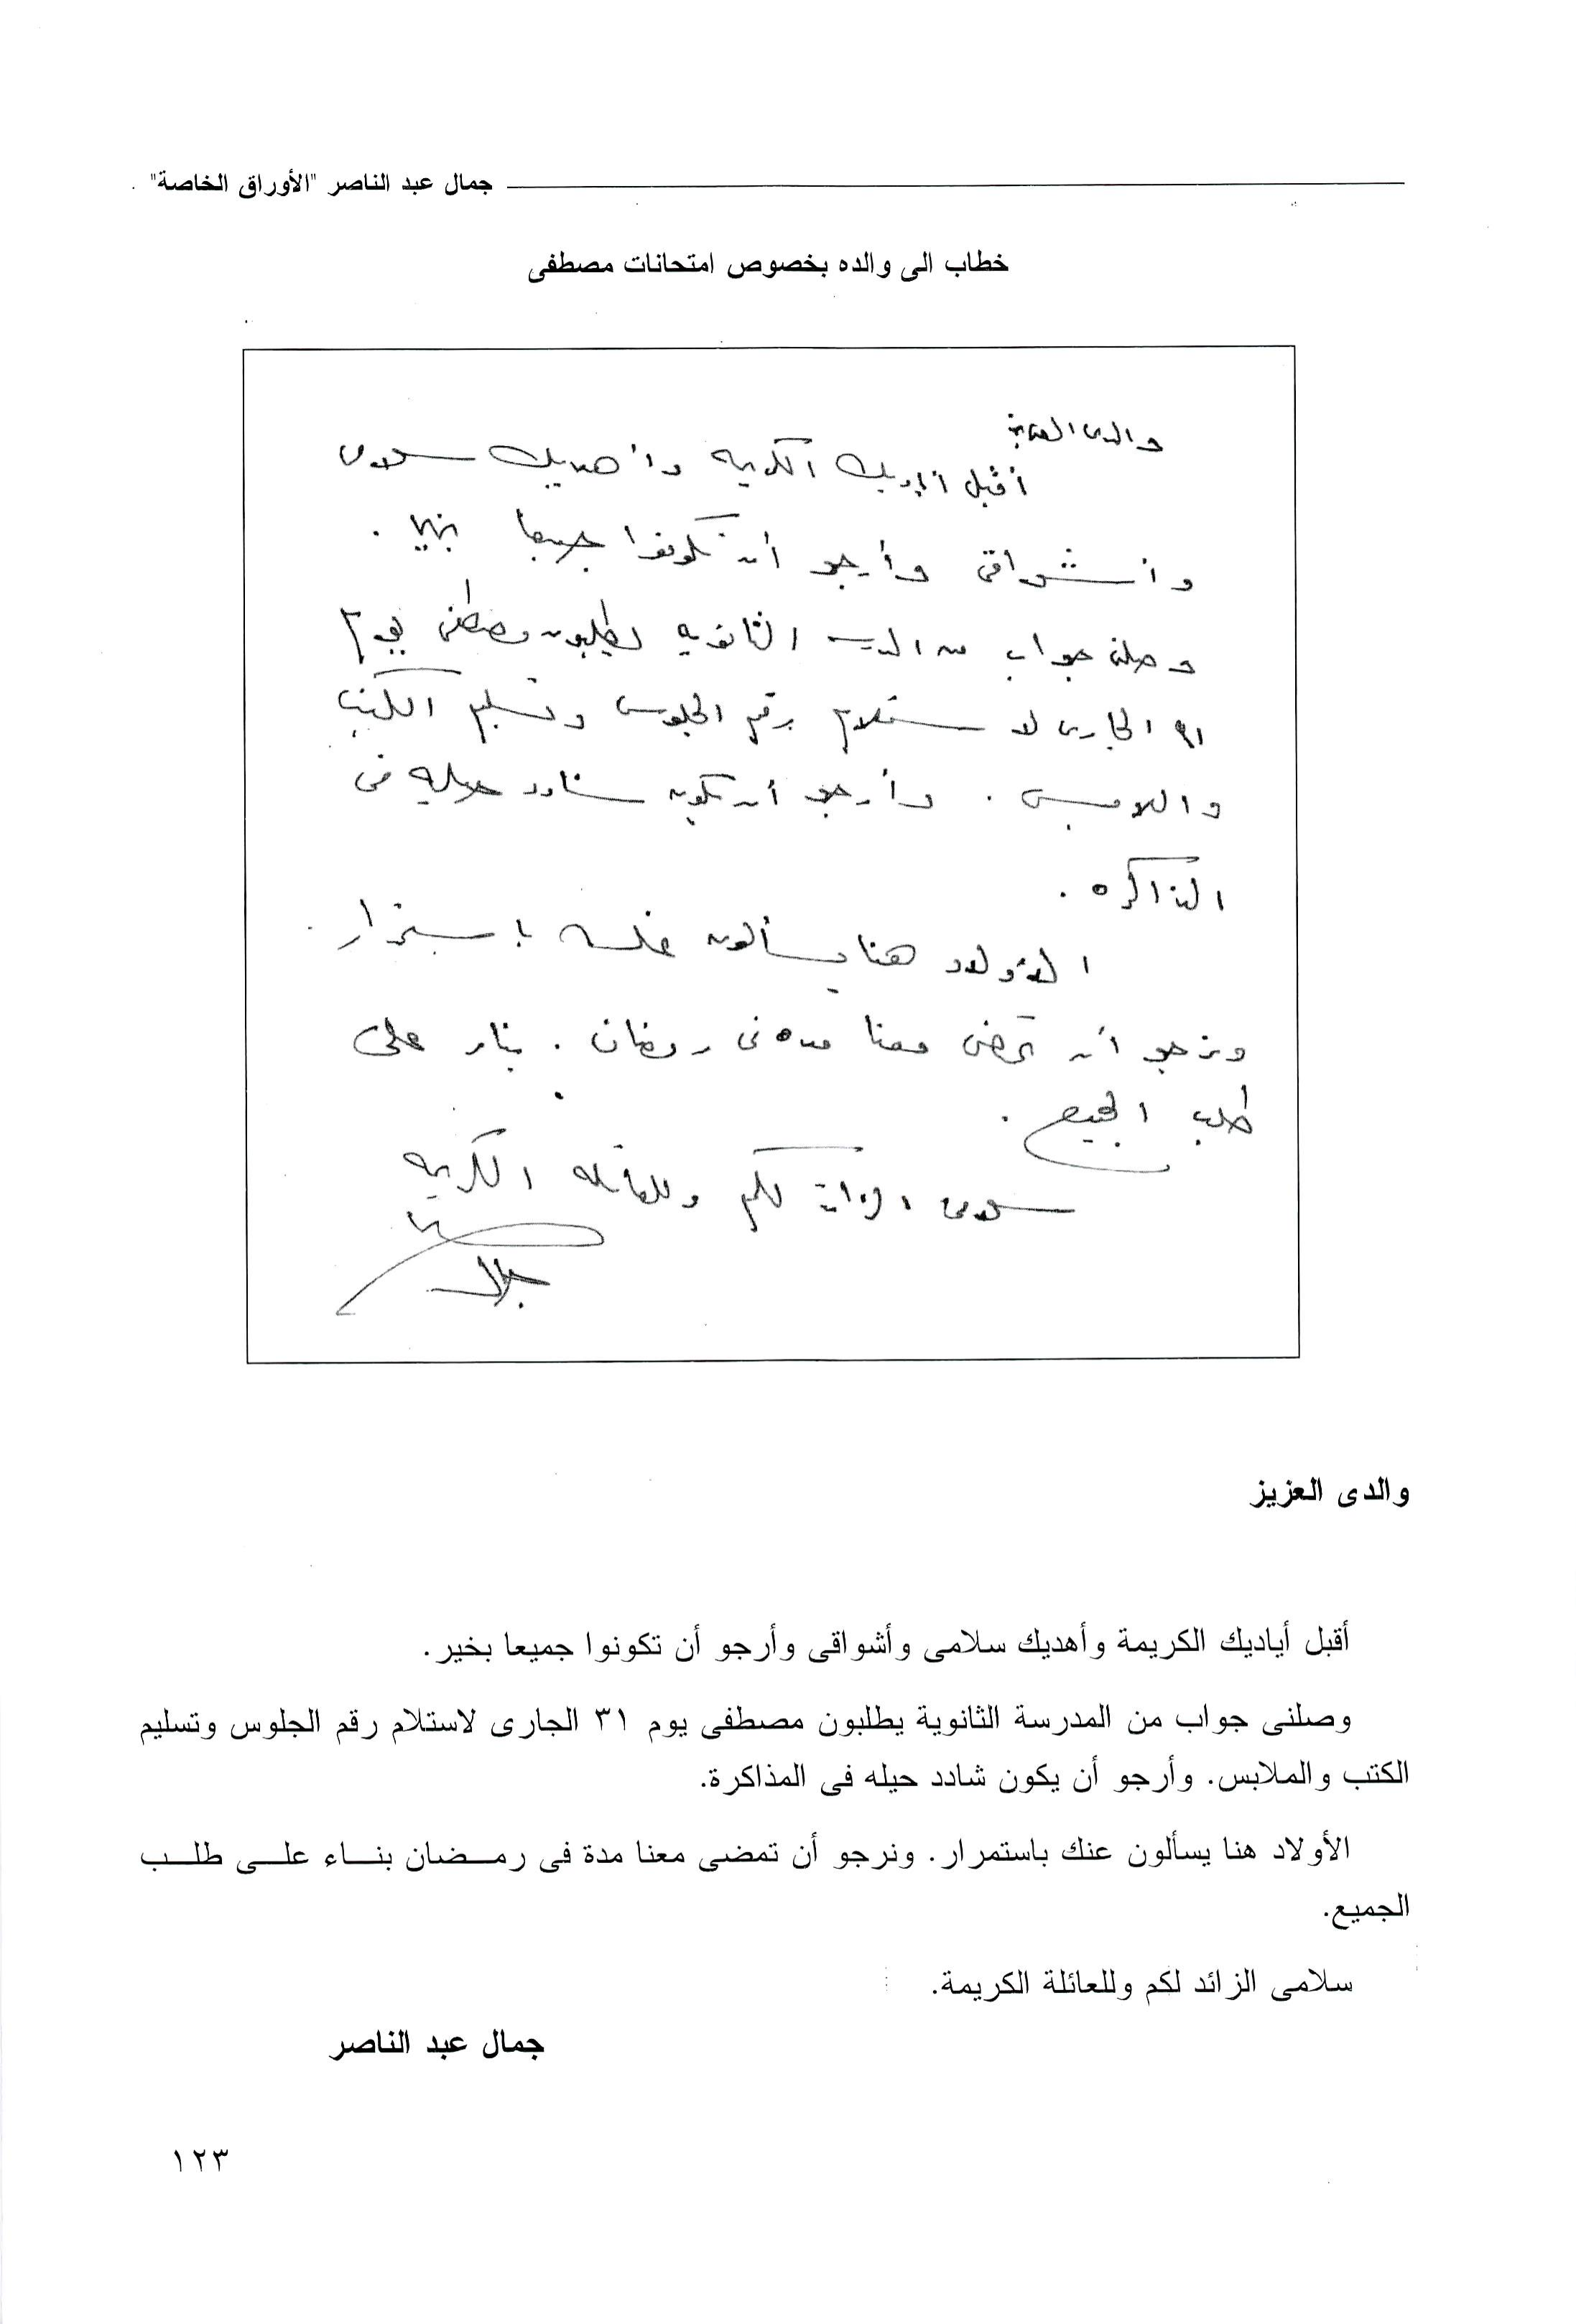 جمال عبد الناصر "الأوراق الخاصة"
خطاب الى والده بخصوص امتحانات مصطفى
والدى العزيز
أقبل أياديك الكريمه وأهديك سلامى
وأشواقى وأرجو أن تكونوا جميعا بخير.
وصلنى جواب من المدرسه الثانويه يطلبون مصطفى يوم
٣١ الجارى لاستلام رقم الجلوس وتسليم الكتب
والملابس. وأرجو أن يكون شادد حيله فى
المذاكره.
الأولاد هنا يسألون عنك باستمرار.
ونرجو أن تمضى معنا مده فى رمضان. بناء على
طلب الجميع.
سلامى الزائد لكم وللعائله الكريمه
جمال
والدى العزيز
أقبل أياديك الكريمة وأهديك سلامى وأشواقى وأرجو أن تكونوا جميعا بخير.
وصلنى جواب من المدرسة الثانوية يطلبون مصطفى يوم ٣١ الجارى لاستلام رقم الجلوس وتسليم
الكتب والملابس. وأرجو أن يكون شادد حيله فى المذاكرة.
الأولاد هنا يسألون عنك باستمرار. ونرجو أن تمضى معنا مدة فى رمضان بناء على طلب
الجميع.
سلامى الزائد لكم وللعائلة الكريمة.
جمال عبد الناصر
١٢٣